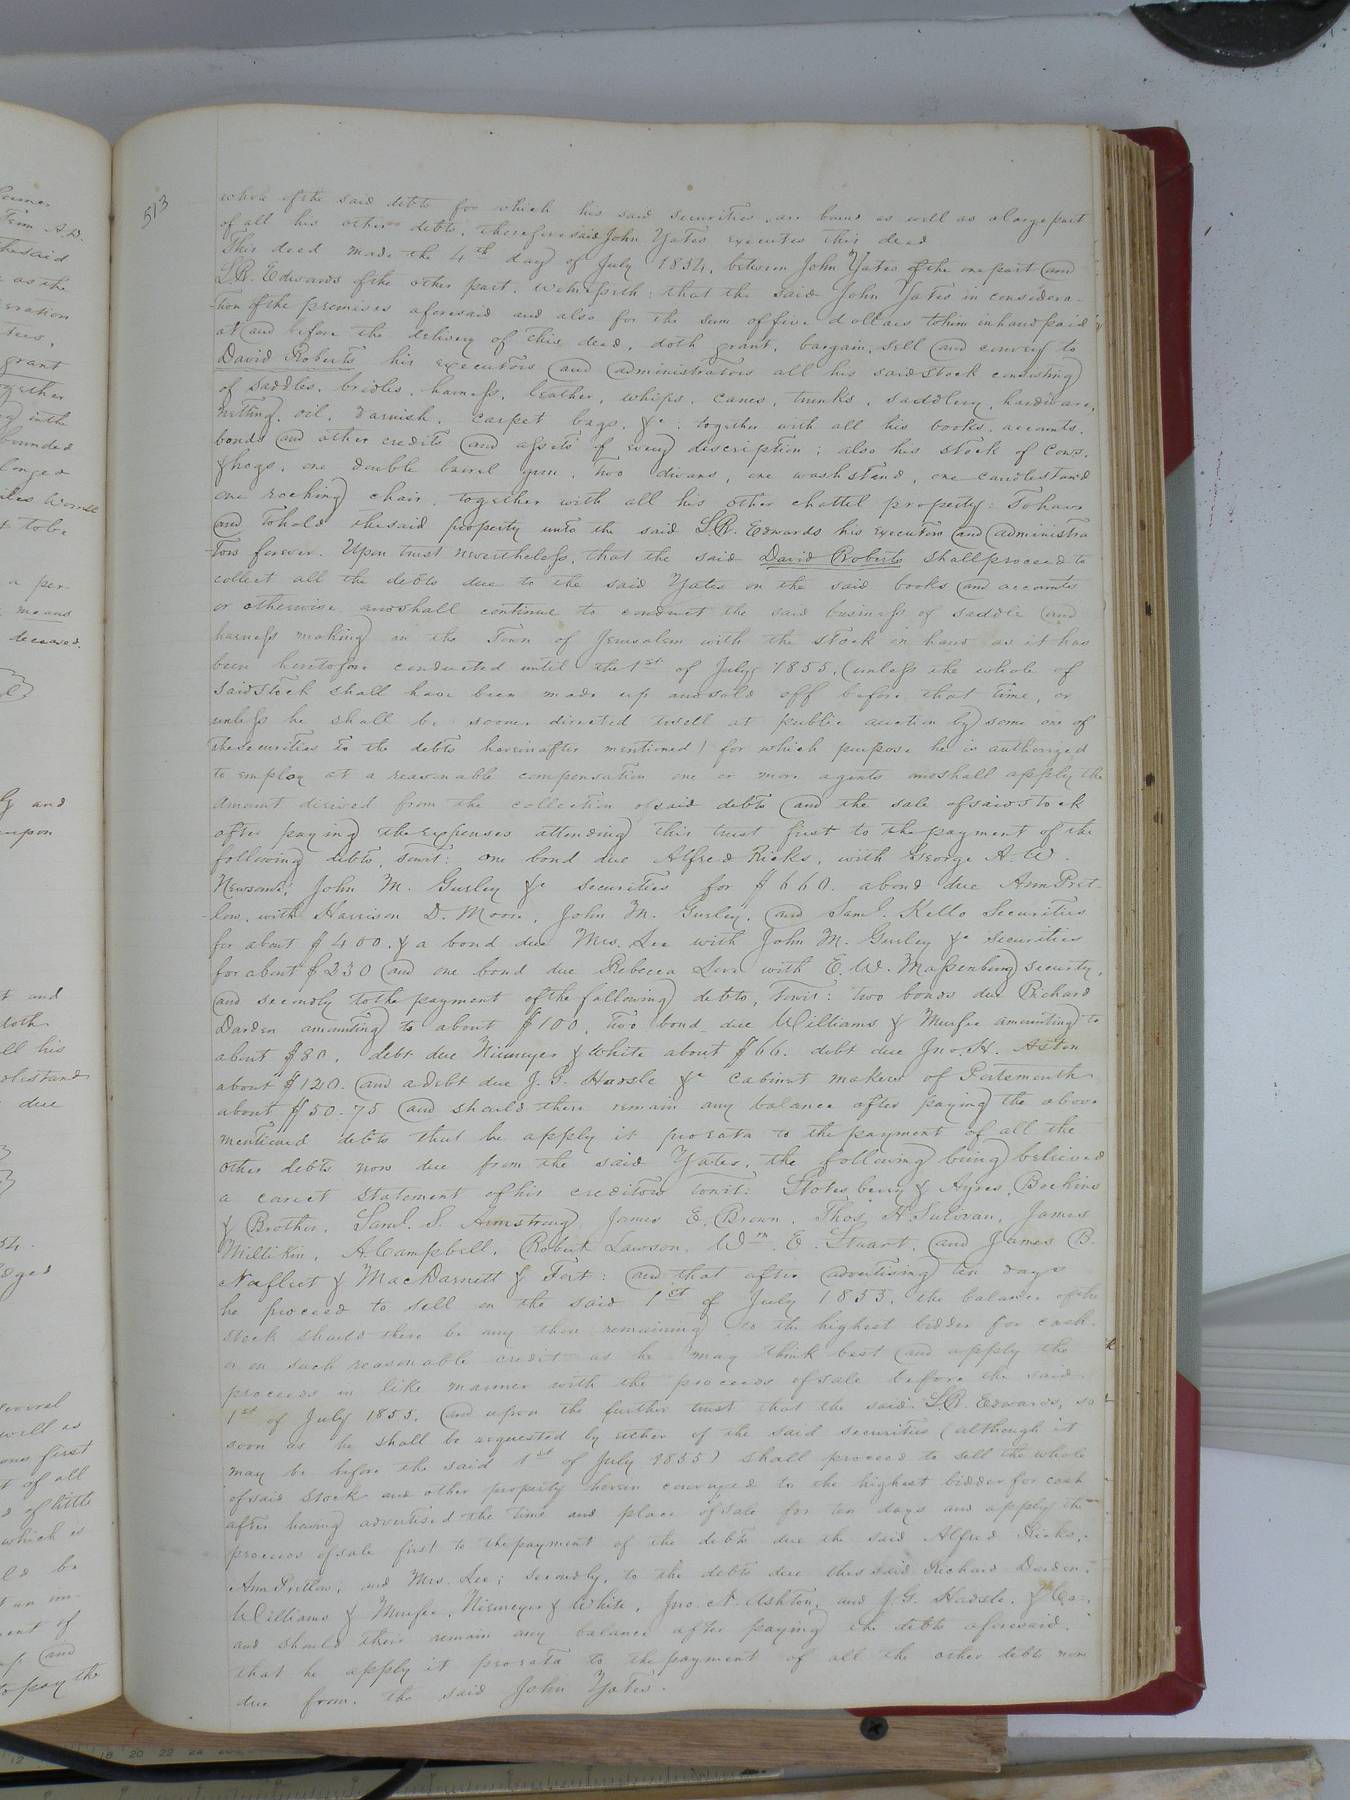 513
whole of the said debts for which his said securities are bound as well as a large part
of all his other debts, therefore said John Yates executes this deed
This deed made the 4th day of July 1854, between John Yates of the one part and
L.R. Edwards of the other part, witnesseth: that the said John Yates in considera-
-tion of the premises aforesaid and also for the sum of five dollars to him in hand paid
at and before the delivery of this deed, doth grant, bargain, sell and convey to
David Roberts his executors and administrators all his said stock consisting
of saddles, bridles, harness, leather, whips, canes, trunks, saddlery, hardware,
netting, oil, varnish, carpet bags, &c; together with all his books, accounts,
bonds and other credits and assets of every description; also his stock of cows,
& hogs, one double barrel gun, two divans, one washstand, one candlestand
one rocking chair, together with all his other chattel property: To have
and to hold the said property unto the said L.R. Edwards his executors and administra
-tors forever. Upon trust nevertheless, that the said David Roberts shall proceed to
collect all the debts due to the said Yates on the said books and accounts
or otherwise and shall continue to conduct the said business of saddle and
harness making in the Town of Jerusalem with the stock on hand as it has
been heretofore conducted until the 1st of July 1855, (unless the whole of
said stock shall have been made up and sold off before that time, or
unless he shall be sooner directed to sell at public auction by some one of
the securities to the debts hereinafter mentioned) for which purpose he is authorized
to employ at a reasonable compensation one or more agents and shall apply the
amount derived from the collection of said debts and the sale of said stock
after paying the expenses attending this trust first to the payment of the
following debts, towit: one bond due Alfred Ricks, with George A. W.
Newsom, John M. Gurley &c securities for $660. a bond due Ann Pret-
-low, with Harrison D. Moore, John M. Gurley, and Saml. Kello Securities
for about $400. & a bond due Mrs. Lee with John M. Gurley &c securities
for about $230 and one bond due Rebecca with E. W. Massenburg security,
and secondly to the payment of the following debts, towit: two bonds due Richard
Darden amounting to about $100, two bond due Williams & Murfee amounting to
about $80. debt due Niemeyer & White about $66. debt due Jno. H. Aston
about $120. and a debt due J. G. &c cabinet makers of Portsmouth
about $50.75 and should there remain any balance after paying the above
mentioned debts that he apply it prorata to the payment of all the
other debts now due from the said Yates, the following being believed
a correct statement of his creditors towit: Stotesberry & Ayres,
& Brother, Saml. S. Armstrong, James E. Brown, Thos H Sulivan, James
Millikin, A. Campbell, Robert Lawson, Wm. E. Stuart, and James B.
Nafleet & MacDarnett & Fort: and that after advertising ten days
he proceed to sell on the said 1st of July 1855, the balance of the
stock should there be any then remaining to the highest bidder for cash.
or on such reasonable credit as he may think best and apply the
proceeds in like manner with the proceeds of sale before the said
1st of July 1855. and upon the further trust that the said L.R. Edwards, so
soon as he shall be requested by either of the said securities (although it
may be before the said 1st of July 1855) shall proceed to sell the whole
of said stock and other property herein conveyed to the highest bidder for cash
after having advertised the time and place of sale for ten days and apply the
proceeds of sale first to the payment of the debts due the said Alfred Ricks,
Ann Pretlow, and Mrs. Lee; secondly, to the debts due the said Richard Darden,
Williams & Murfee, Niemeyer & White, Jno. N. Ashton, and J. G. & Co.,
and should their remain any balance after paying the debts aforesaid,
that he apply it prorata to the payment of all the other debts now
due from the said John Yates.